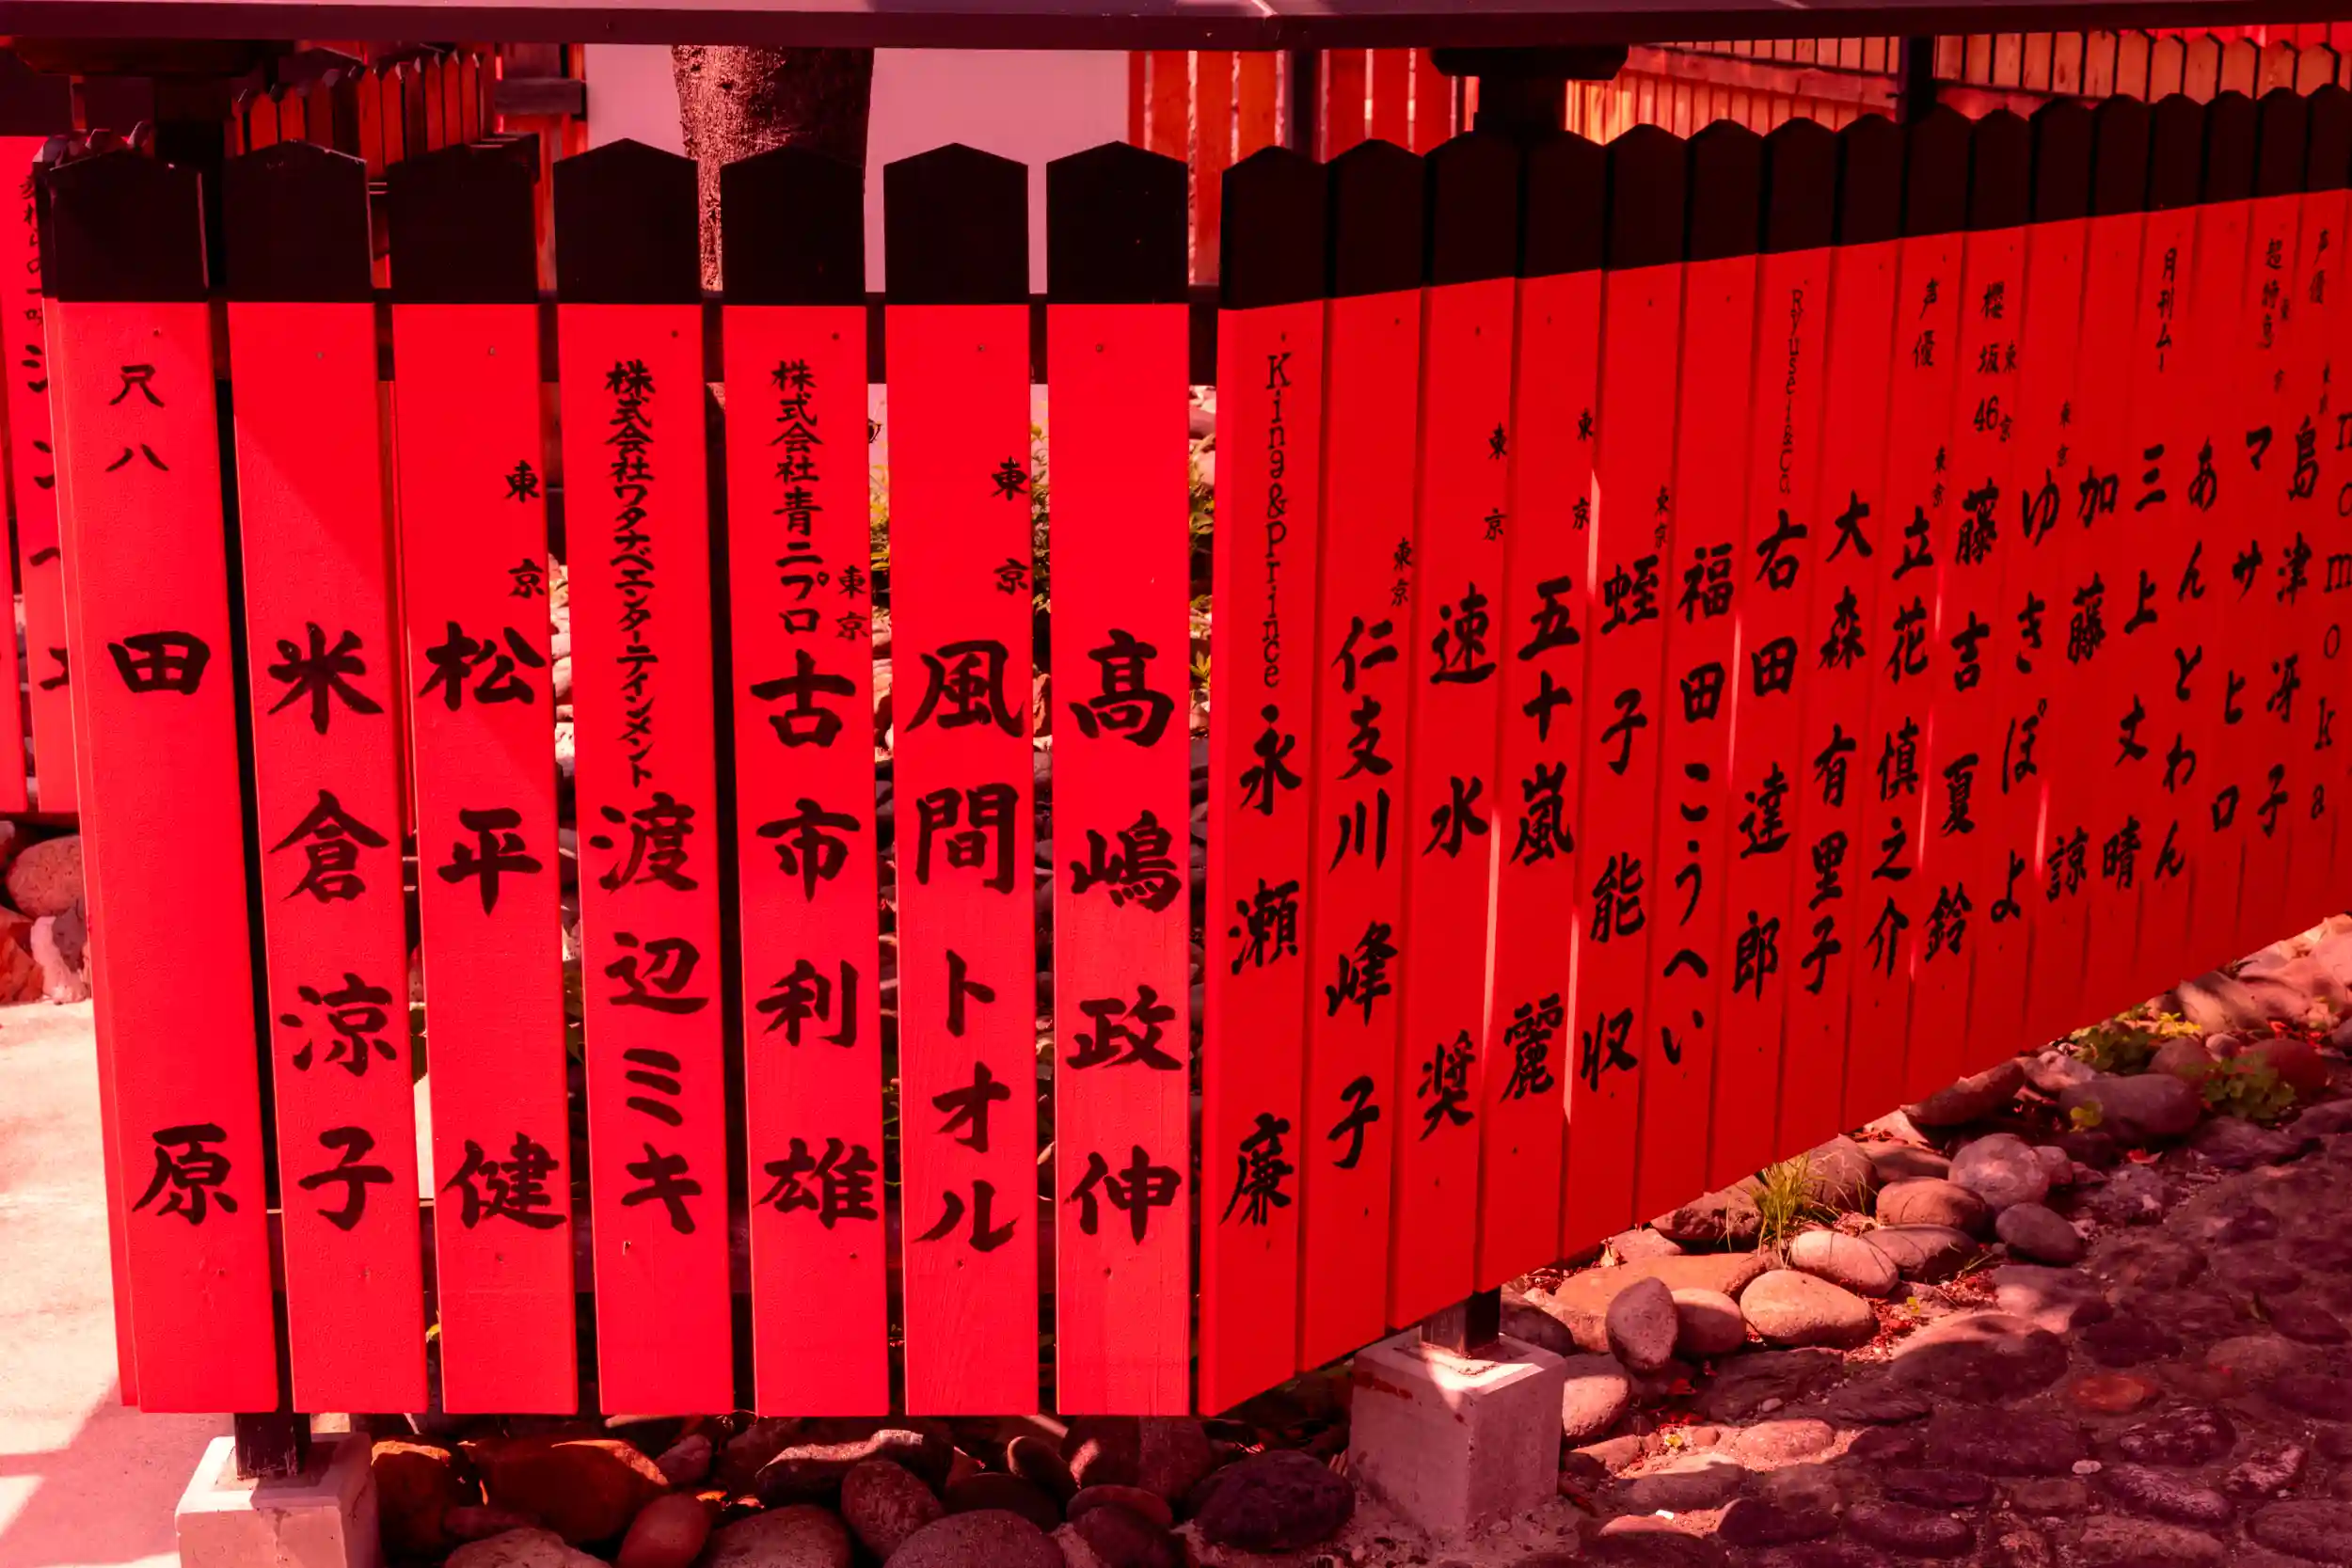 尺八 田原
米倉涼子
東京 松平健
株式会社ワタナベエンターテインメント 渡辺ミキ
株式会社青二プロ 東京 古市利雄
東京 風間トオル
高嶋政伸
King&Prince 永瀬廉
東京 仁支川峰子
東京 速水奨
東京 五十嵐麗
東京 蛭子能収
福田こうへい
Ryusei&Co. 右田達郎
大森有里子
声優 東京 立花慎之介
櫻坂46 東京 藤吉夏鈴
東京 ゆきぽよ
加藤諒
月刊ムー 三上丈晴
あんどわん
マサヒロ
声優 東京 島津冴子
nomoka